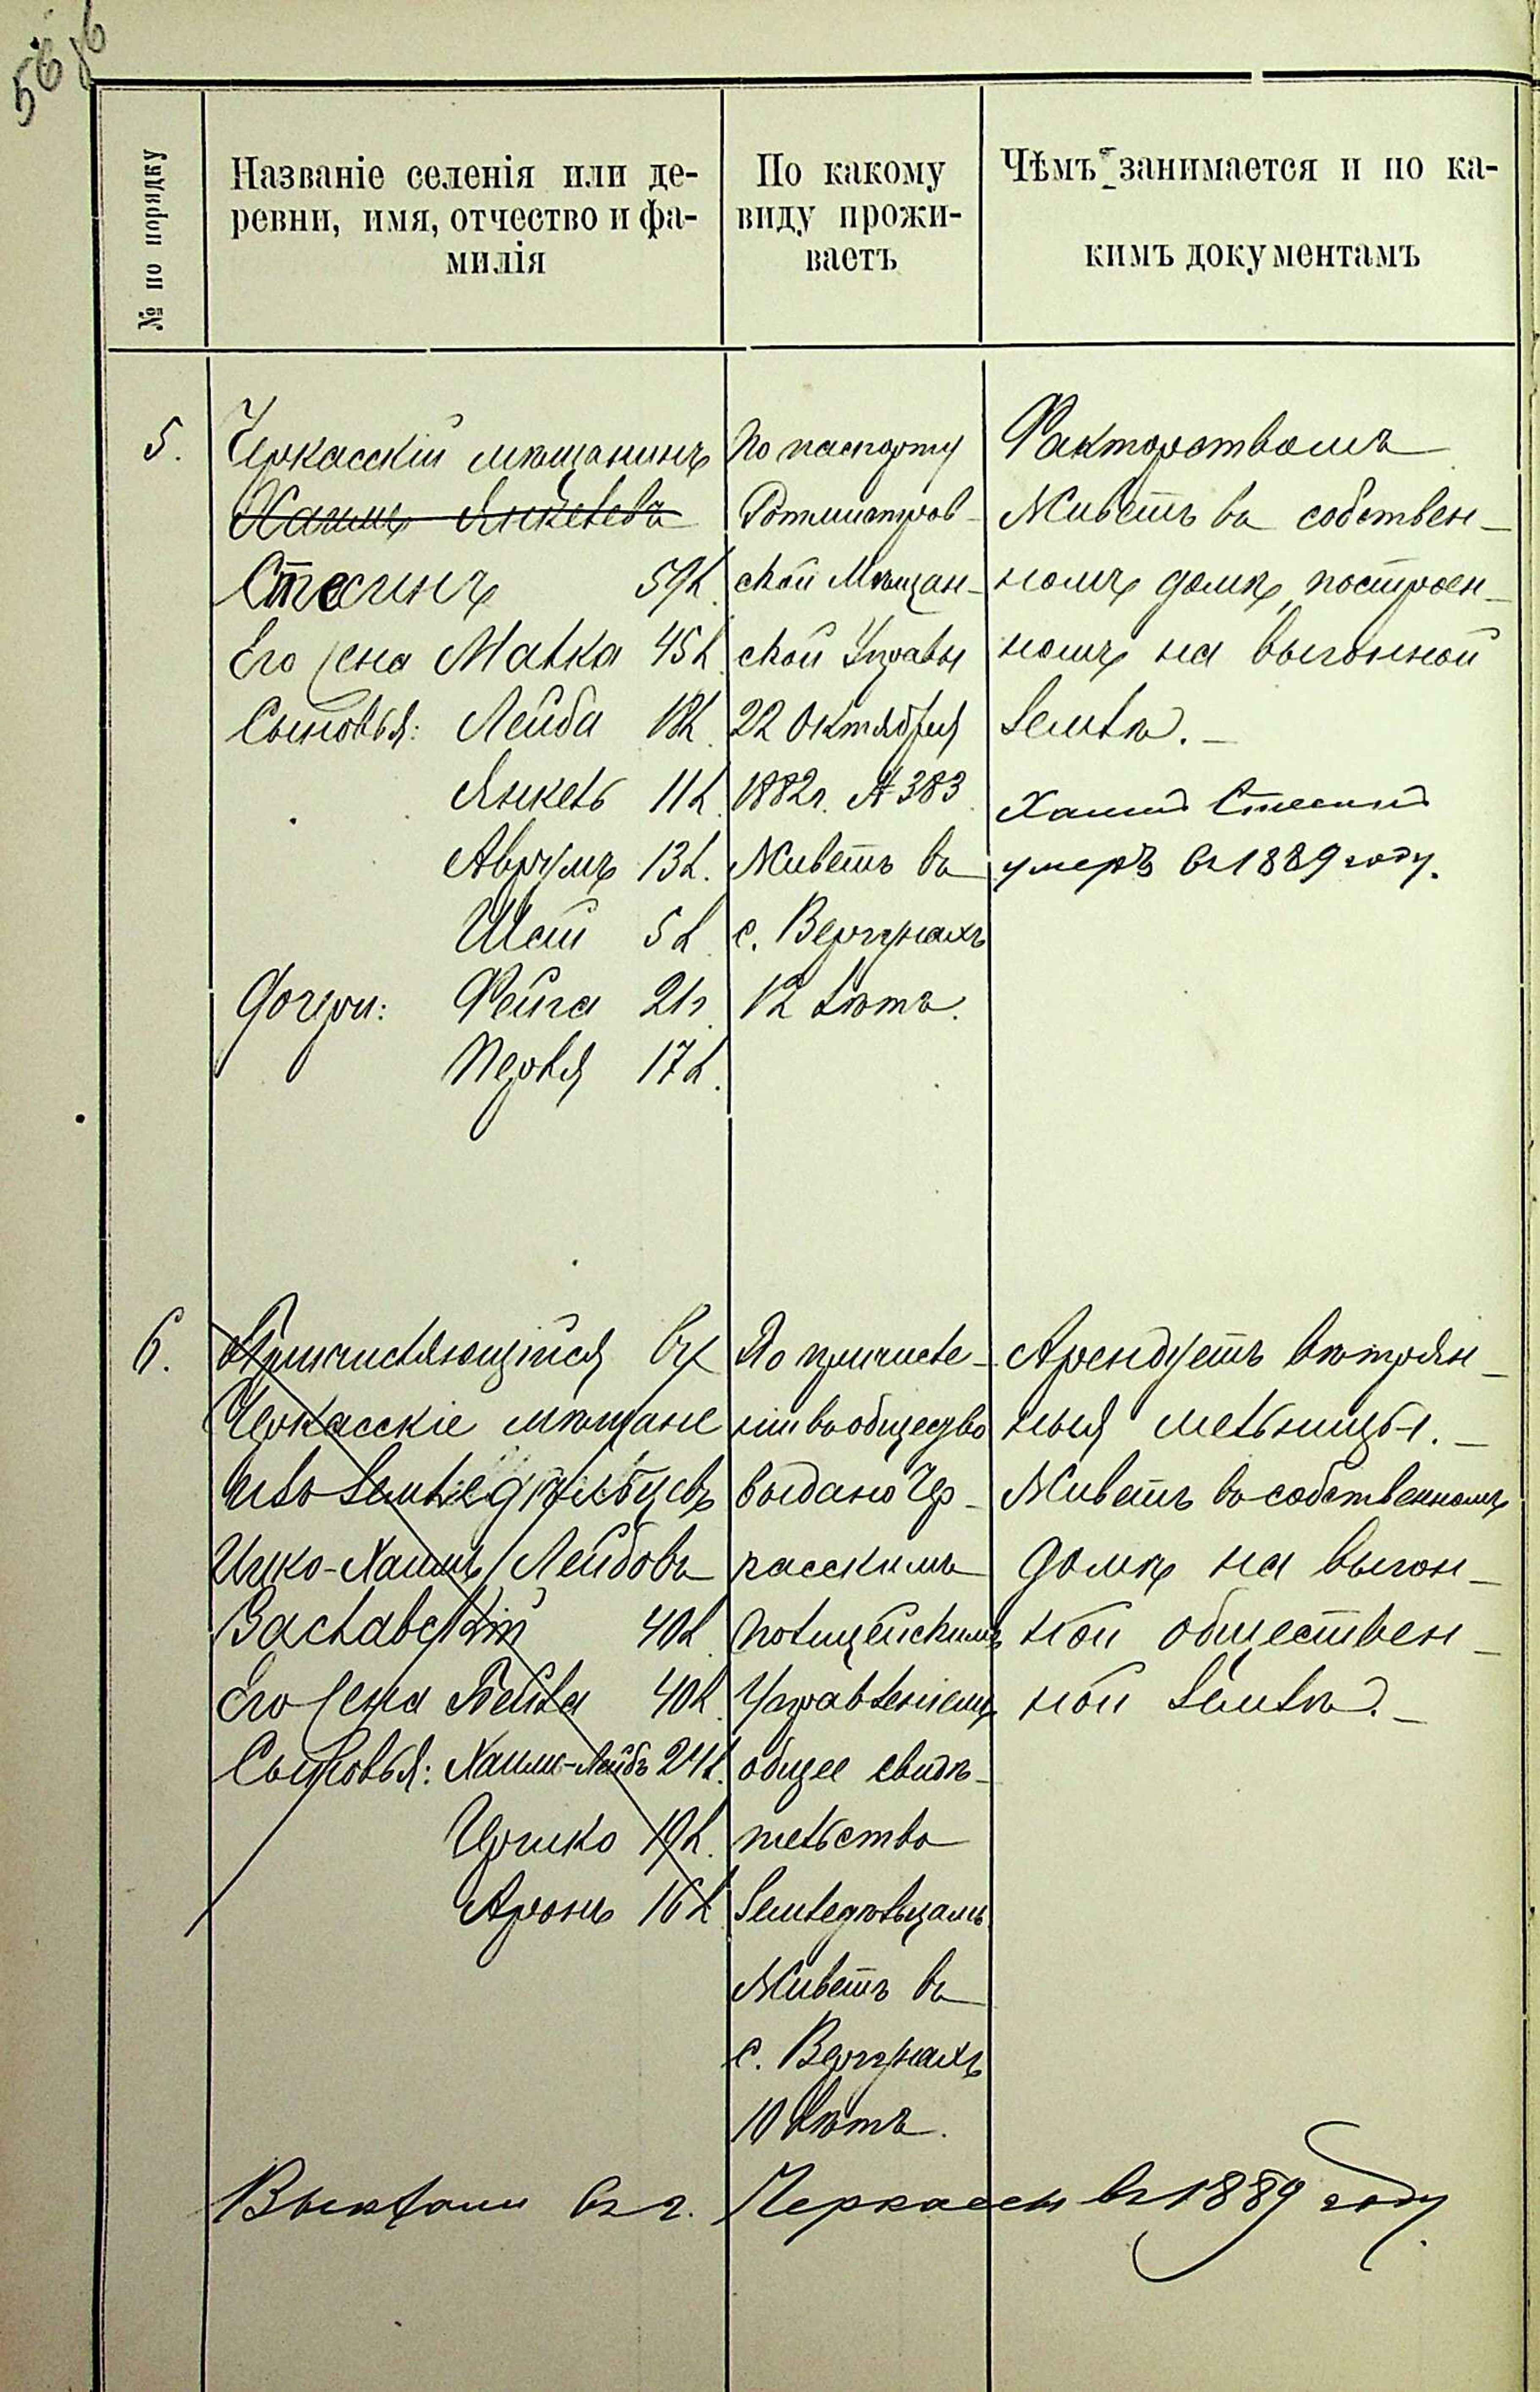 56 об
№ по порядку
Названіе селенія или де-
ревни, имя, отчество и фа-
милія
По какому
виду прожи-
ваетъ
Чѣмъ занимается и по ка-
кимъ документамъ
5.
Черкасскій мѣщанинъ
Хаимъ Янкелевъ
Стесинъ 59 л.
Его жена Малка 45 л.
Сыновья: Лейба 18 л.
Янкель 11 л.
Аврумъ 13 л.
Шай 5 л.
Дочери: Фейга 21 г.
Перля 17 л.
По паспорту
Ротмистров-
ской Мѣщан-
ской Управы
22 Октября
1882 г. № 383
Живетъ въ
с. Вергунахъ
12 лѣтъ.
Факторствомъ
Живетъ въ собствен-
номъ домѣ, построен-
номъ на выгонной
землѣ.
Хаимъ Стесинъ
умеръ въ 1889 году.
6.
Причисляющійся въ
Черкасскіе мѣщане
изъ земледѣльцевъ
Ицко-Хаимъ Лейбовъ
Заславскій 40 л.
Его жена Бейла 40 л.
Сыновья: Хаимъ-Лейбъ 24 л.
Іершко 19 л.
Аронъ 16 л.
По причисле-
ніи въ общество
выдано Чер-
касскимъ
полицейскимъ
Управленіемъ
общее свидѣ-
тельство
земледѣльцамъ
Живетъ въ
с. Вергунахъ
10 лѣтъ.
Арендуетъ вѣтрян-
ныя мельницы.
Живетъ въ собственномъ
домѣ на выгон-
ной обществен-
ной землѣ.
Выѣхали въ г. Черкассы въ 1889 году.